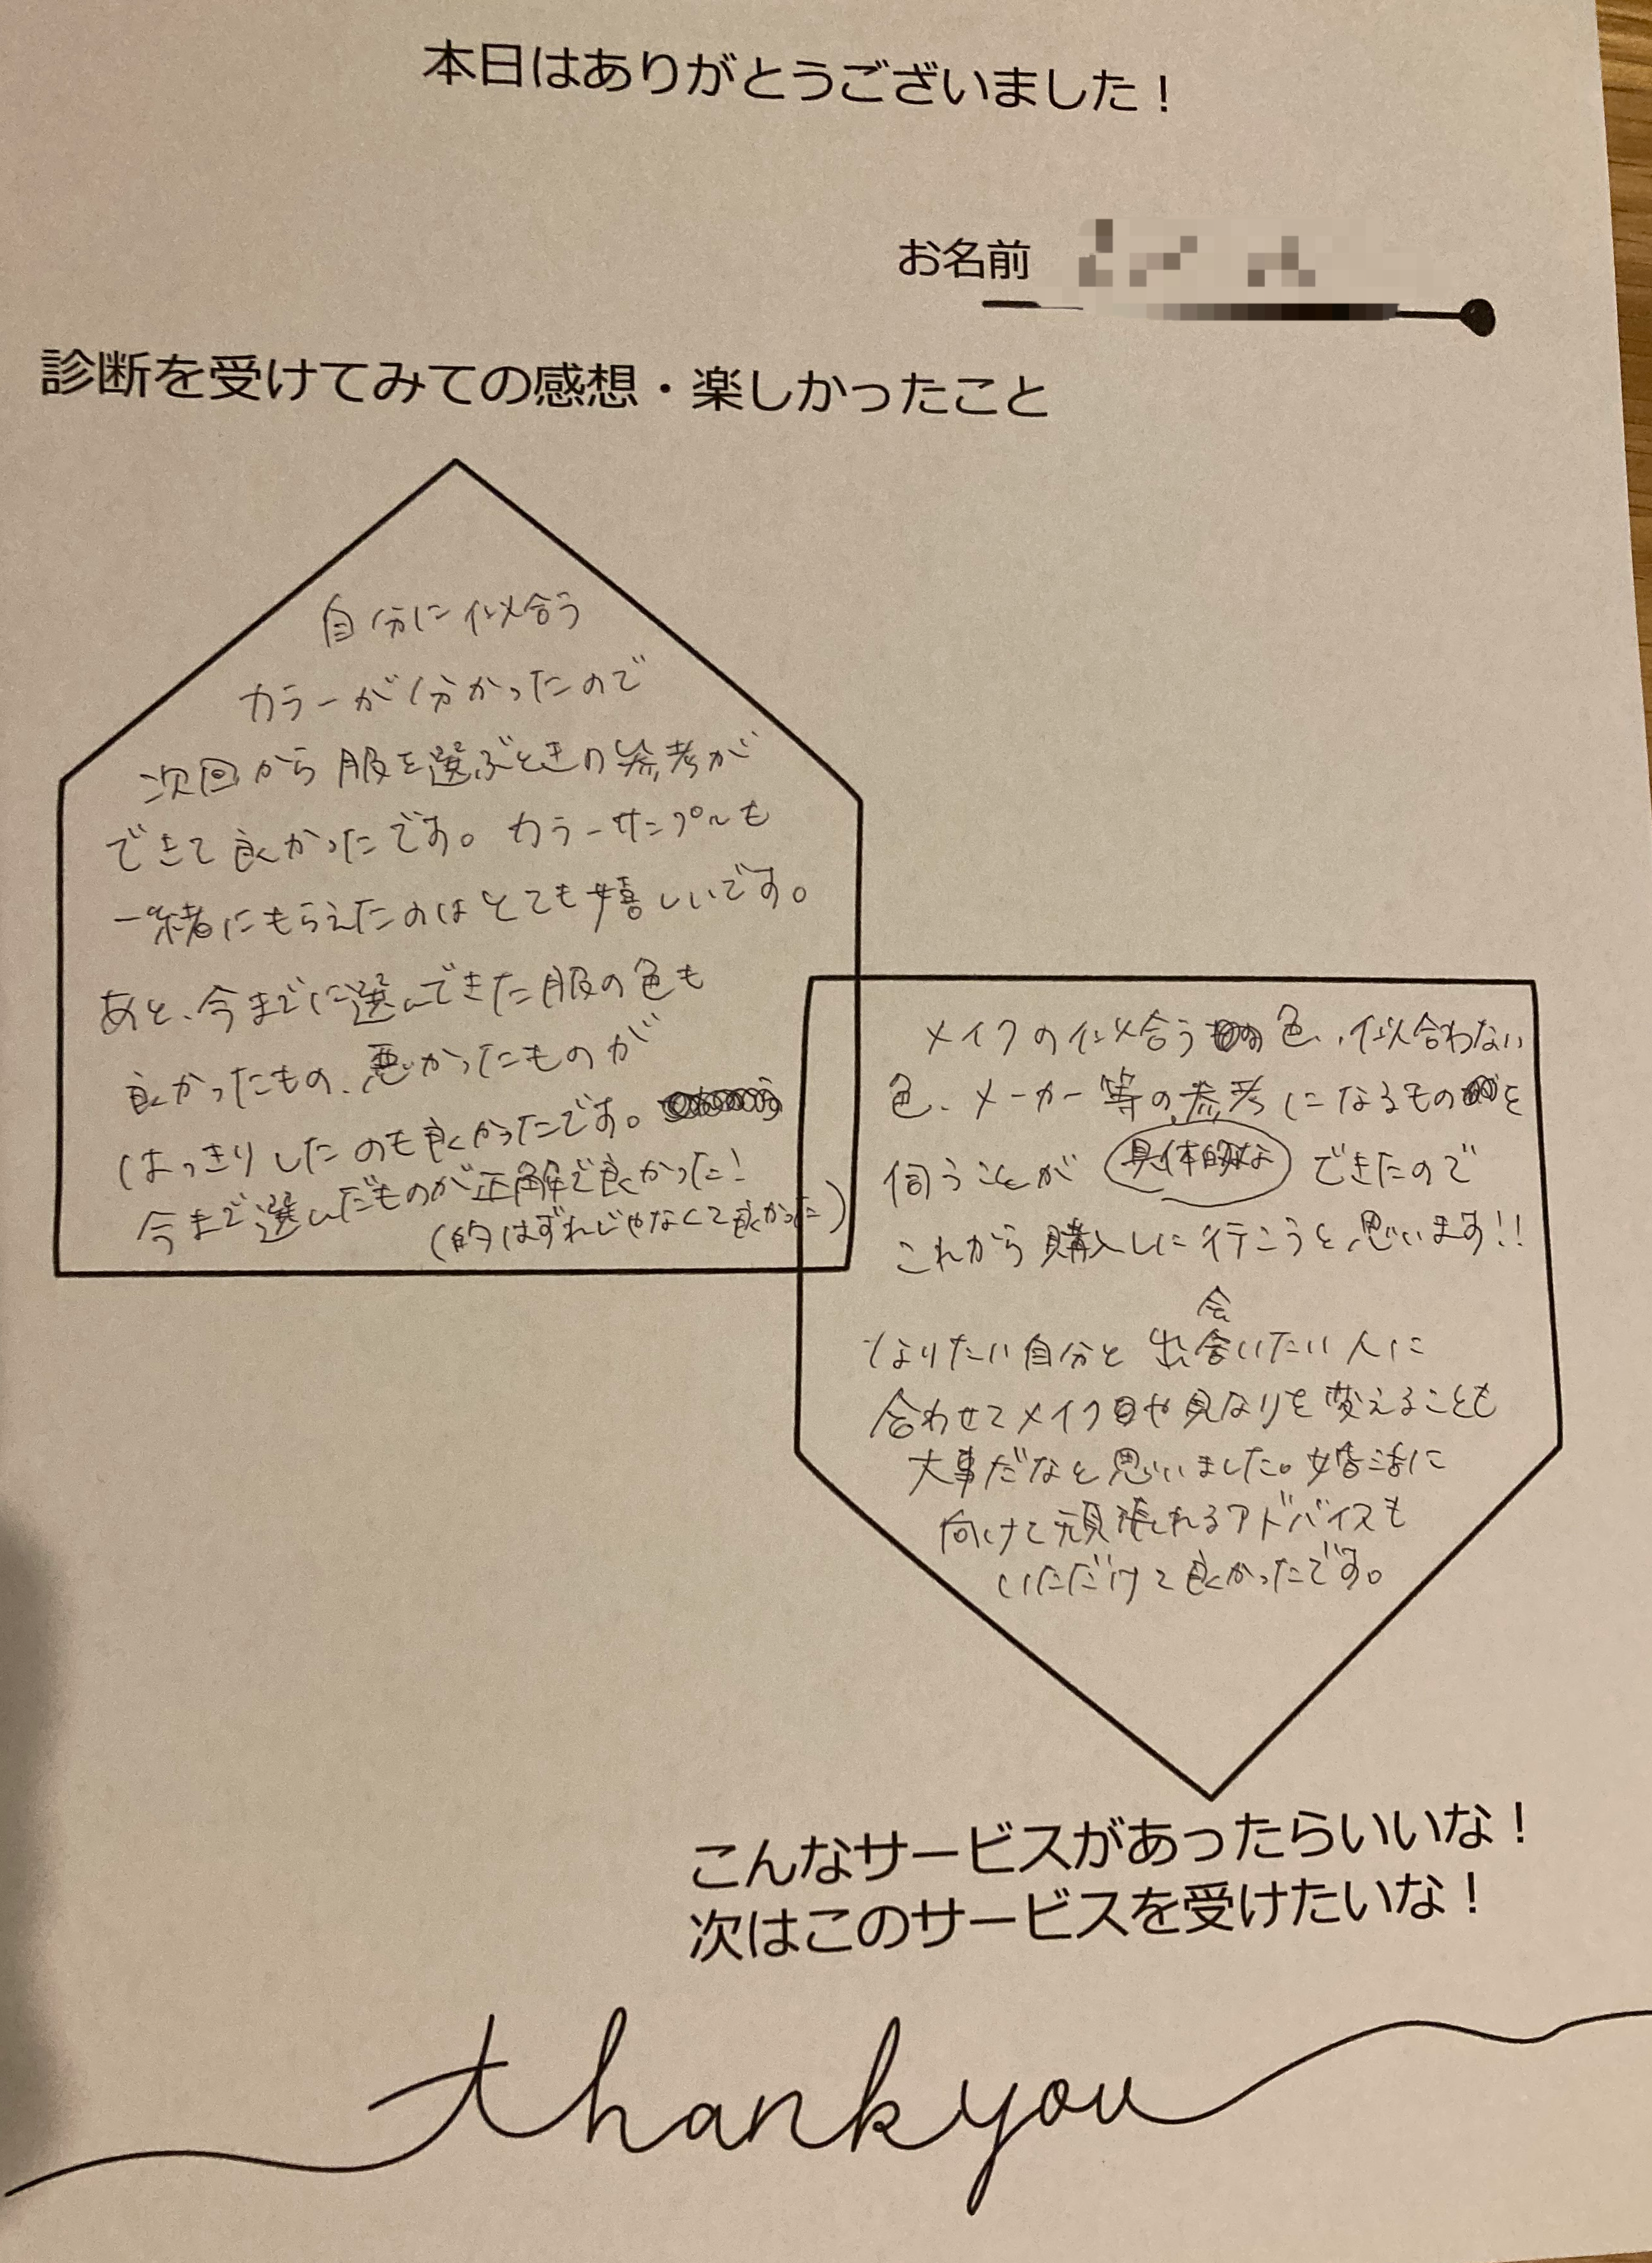 本日はありがとうございました！
お名前
診断を受けてみての感想・楽しかったこと
自分に似合う
カラーが分かったので
次回から服を選ぶときの参考が
できて良かったです。カラーサンプルも
一緒にもらえたのはとても嬉しいです。
あと、今までに選んできた服の色も
良かったもの、悪かったものが
はっきりしたのも良かったです。
今まで選んだものが正解で良かった！
(的はずれじゃなくて良かった)
メイクの似合う色、似合わない
色、メーカー等の参考になるものを
伺うことが 具体的な できたので
これから購入しに行こうと思います!!
会
なりたい自分と出会いたい人に
合わせてメイクや見なりを変えることも
大事だなと思いました。婚活に
向けて頑張れるアドバイスも
いただけて良かったです。
こんなサービスがあったらいいな！
次はこのサービスを受けたいな！
thank you